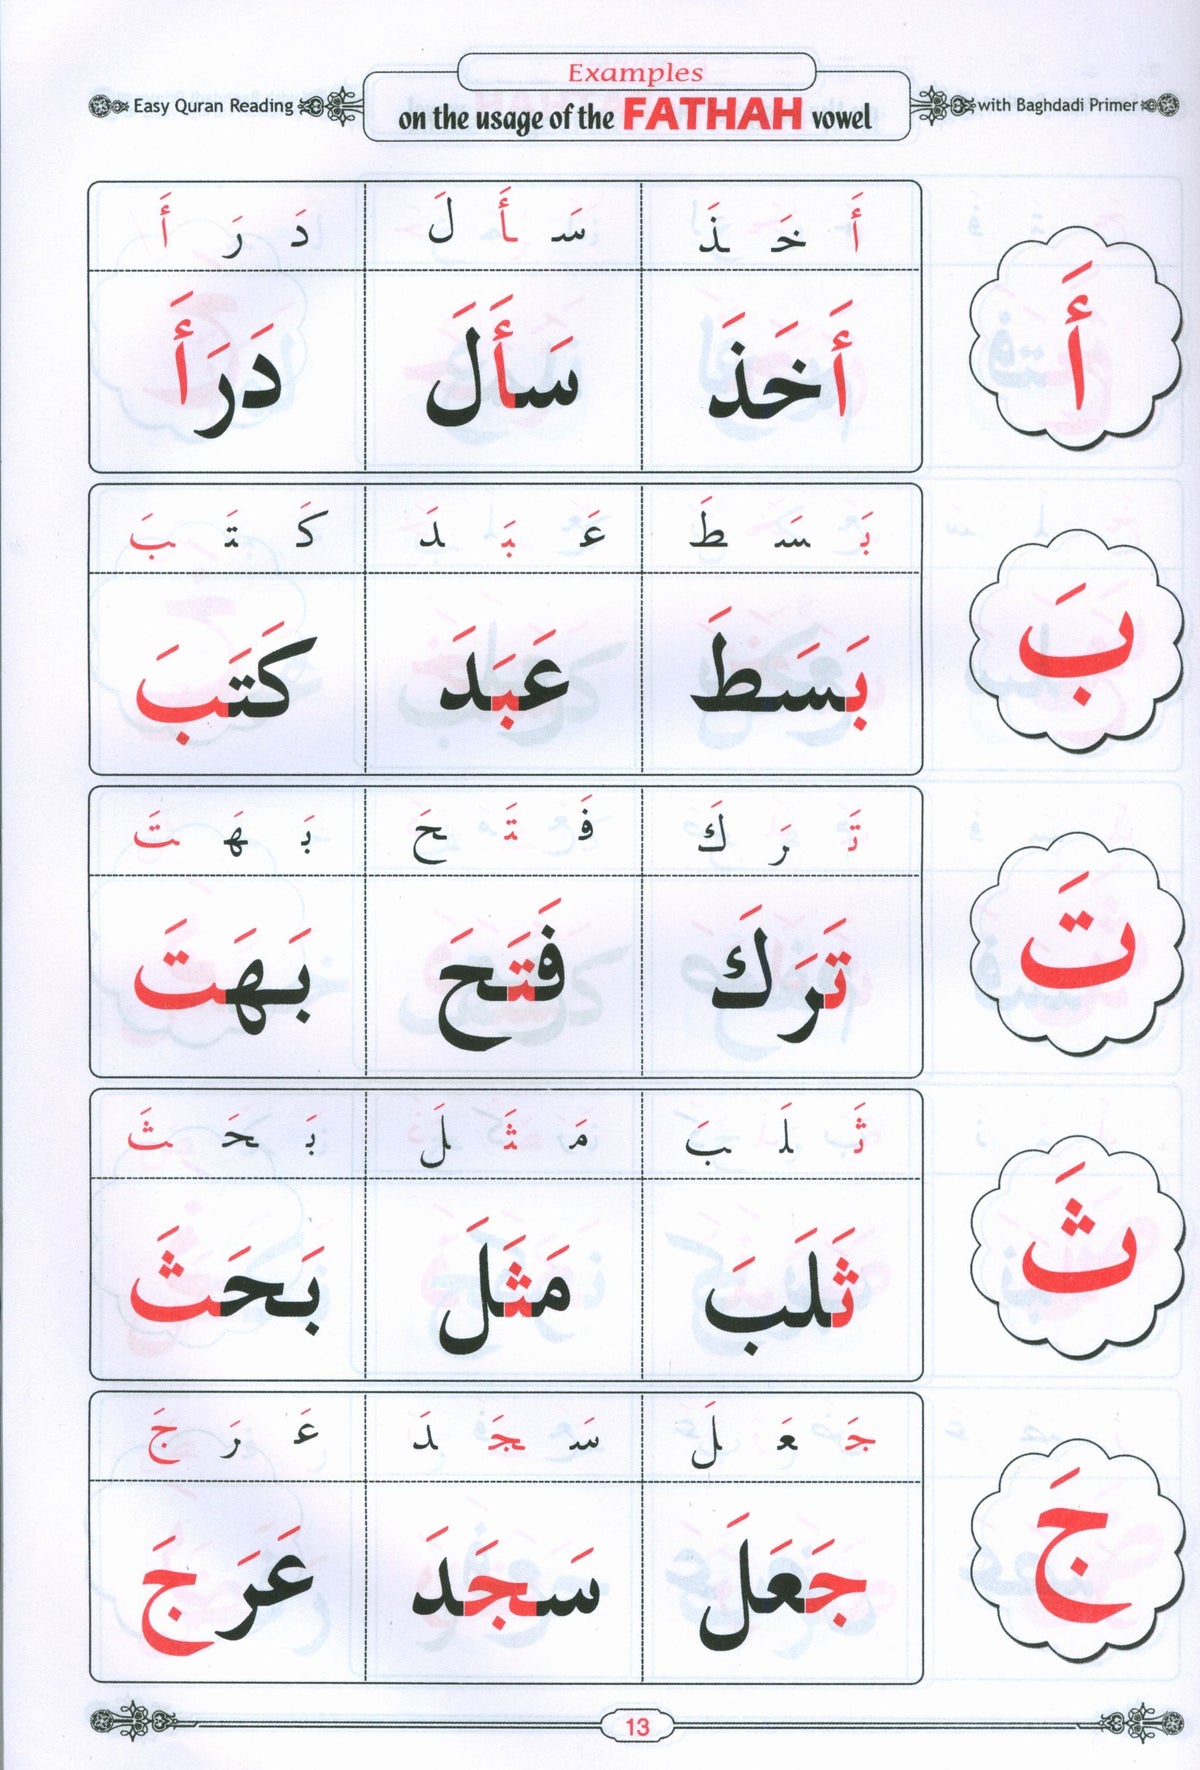 Examples
Easy Quran Reading on the usage of the FATHAH vowel with Baghdadi Primer
أَ
أَ خَ ذَ سَ أَ لَ دَ رَ أَ
أَخَذَ سَأَلَ دَرَأَ
بَ
بَ سَ طَ عَ بَ دَ كَ تَ بَ
بَسَطَ عَبَدَ كَتَبَ
تَ
تَ رَ كَ فَ تَ حَ بَ هَ تَ
تَرَكَ فَتَحَ بَهَتَ
ثَ
ثَ لَ بَ مَ ثَ لَ بَ حَ ثَ
ثَلَبَ مَثَلَ بَحَثَ
جَ
جَ عَ لَ سَ جَ دَ عَ رَ جَ
جَعَلَ سَجَدَ عَرَجَ
13